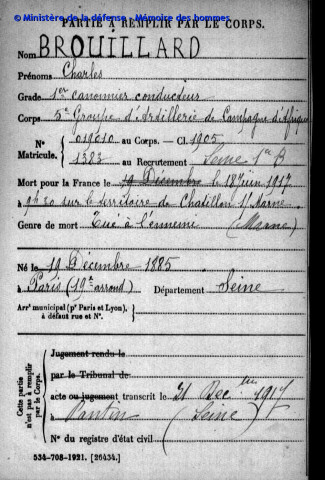 © Ministère de la défense - Mémoire des hommes
PARTIE À REMPLIR PAR LE CORPS.
Nom BROUILLARD
Prénoms Charles
Grade 1er canonnier conducteur
Corps 5e Groupe d'Artillerie de Campagne d'Afrique
N° Matricule. 019010 au Corps. — Cl. 1905
1383 au Recrutement Seine 1er B
Mort pour la France le 19 Décembre le 18 Juin 1917
à 9h30 sur le territoire de Chatillon s/ Marne
Genre de mort Tué à l'ennemi (Marne)
Né le 19 Décembre 1885
à Paris (19e arrond) Département Seine
Arrt municipal (pr Paris et Lyon),
à défaut rue et N°.
Cette partie
n'est pas à remplir
par le Corps.
Jugement rendu le
par le Tribunal de
acte ou jugement transcrit le 21 Dec bre 1917
à Pantin (Seine)
N° du registre d'état civil
534-708-1921. [26434.]